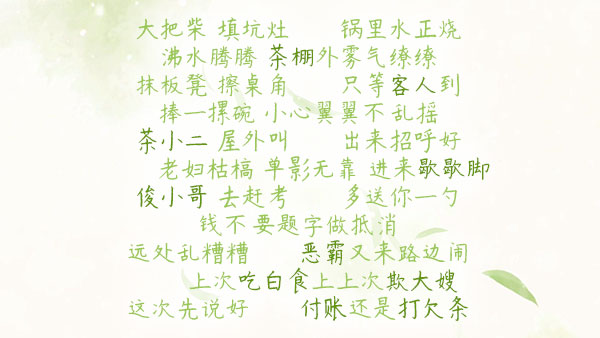 大把柴 填坑灶 锅里水正烧
沸水腾腾 茶棚外雾气缭缭
抹板凳 擦桌角 只等客人到
捧一摞碗 小心翼翼不乱摇
茶小二 屋外叫 出来招呼好
老妇枯槁 单影无靠 进来歇歇脚
俊小哥 去赶考 多送你一勺
钱不要题字做抵消
远处乱糟糟 恶霸又来路边闹
上次吃白食上上次欺大嫂
这次先说好 付账还是打欠条